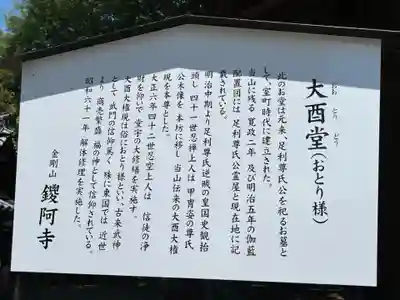 大酉堂(おとり様)
おお とり どう
此のお堂は元来、足利尊氏公を祀るお墓と
して、室町時代に建立された。
当山に残る 寛政二年 及び明治五年の伽藍
配置図には、足利尊氏公霊屋と現在地に記
載されている。
明治中期より足利尊氏逆賊の皇国史観抬
頭し 四十一世忍禅上人は 甲冑姿の尊氏
公木像を本坊に移し 当山伝来の大酉大権
現を本尊とした。
大正六年 四十二世忍空上人は 信徒の浄
財を仰いで 堂宇の大修繕を実施す。
大酉大権現は俗におとり様といい、古来武神
として 武門の信仰篤く 殊に東国では 近世
より 商売繁昌 福の神として信仰されている。
昭和六十一年 解体修理を実施した。
金剛山 鑁阿寺